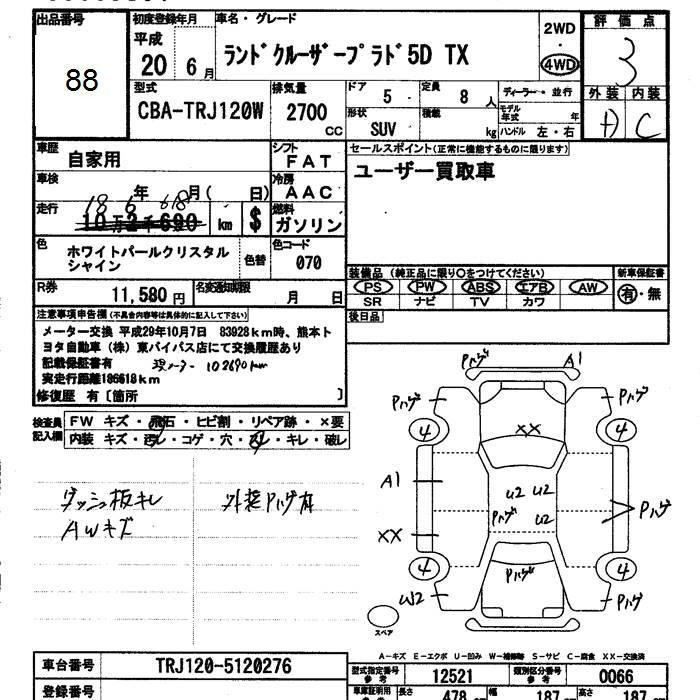 出品番号
88
初度登録年月
平成
20 6月
車名・グレード
ランドクルーザープラド5D TX
2WD
・
4WD
評価点
3
型式
CBA-TRJ120W
排気量
2700
CC
ドア
5
定員
8 人
ディーラー・並行
モデル年式 年
形状
SUV
積載
kg
ハンドル 左・右
外装 内装
C
車歴
自家用
シフト
FAT
セールスポイント(正常に機能するものに限ります)
ユーザー買取車
車検
年 月( 日)
冷房
AAC
走行
186618
10万2千690 km
$
燃料
ガソリン
色
ホワイトパールクリスタル
シャイン
色替
色コード
070
装備品(純正品に限り○をつけてください)
新車保証書
PS PW ABS エアB AW
SR ナビ TV カワ
有・無
R券
11,580円
名変通知期限
月 日
後日品
注意事項申告欄(不具合内容等は具体的に記入して下さい)
メーター交換 平成29年10月7日 83928km時、熊本ト
ヨタ自動車(株)東バイパス店にて交換履歴あり
記載保証書有 現メーター 102690km
実走行距離186618km
修復歴 有〔箇所 〕
検査員
記入欄
FW キズ・飛石・ヒビ割・リペア跡・×要
内装 キズ・汚レ・コゲ・穴・スレ・キレ・破レ
ダッシュ板キレ 外装Pハゲ有
AWキズ
Pハゲ A1
Pハゲ Pハゲ
4 4
XX
A1
U2 U2
Pハゲ U2
Pハゲ
XX
4 4
Pハゲ
W2 Pハゲ
スペア
A-キズ E-エクボ U-凹み W-補修跡 S-サビ C-腐食 XX-交換済
車台番号
TRJ120-5120276
型式指定番号
参考
12521
類別区分番号
参考
0066
登録番号
車庫証明用
参考
長さ
478
幅
187
高さ
187